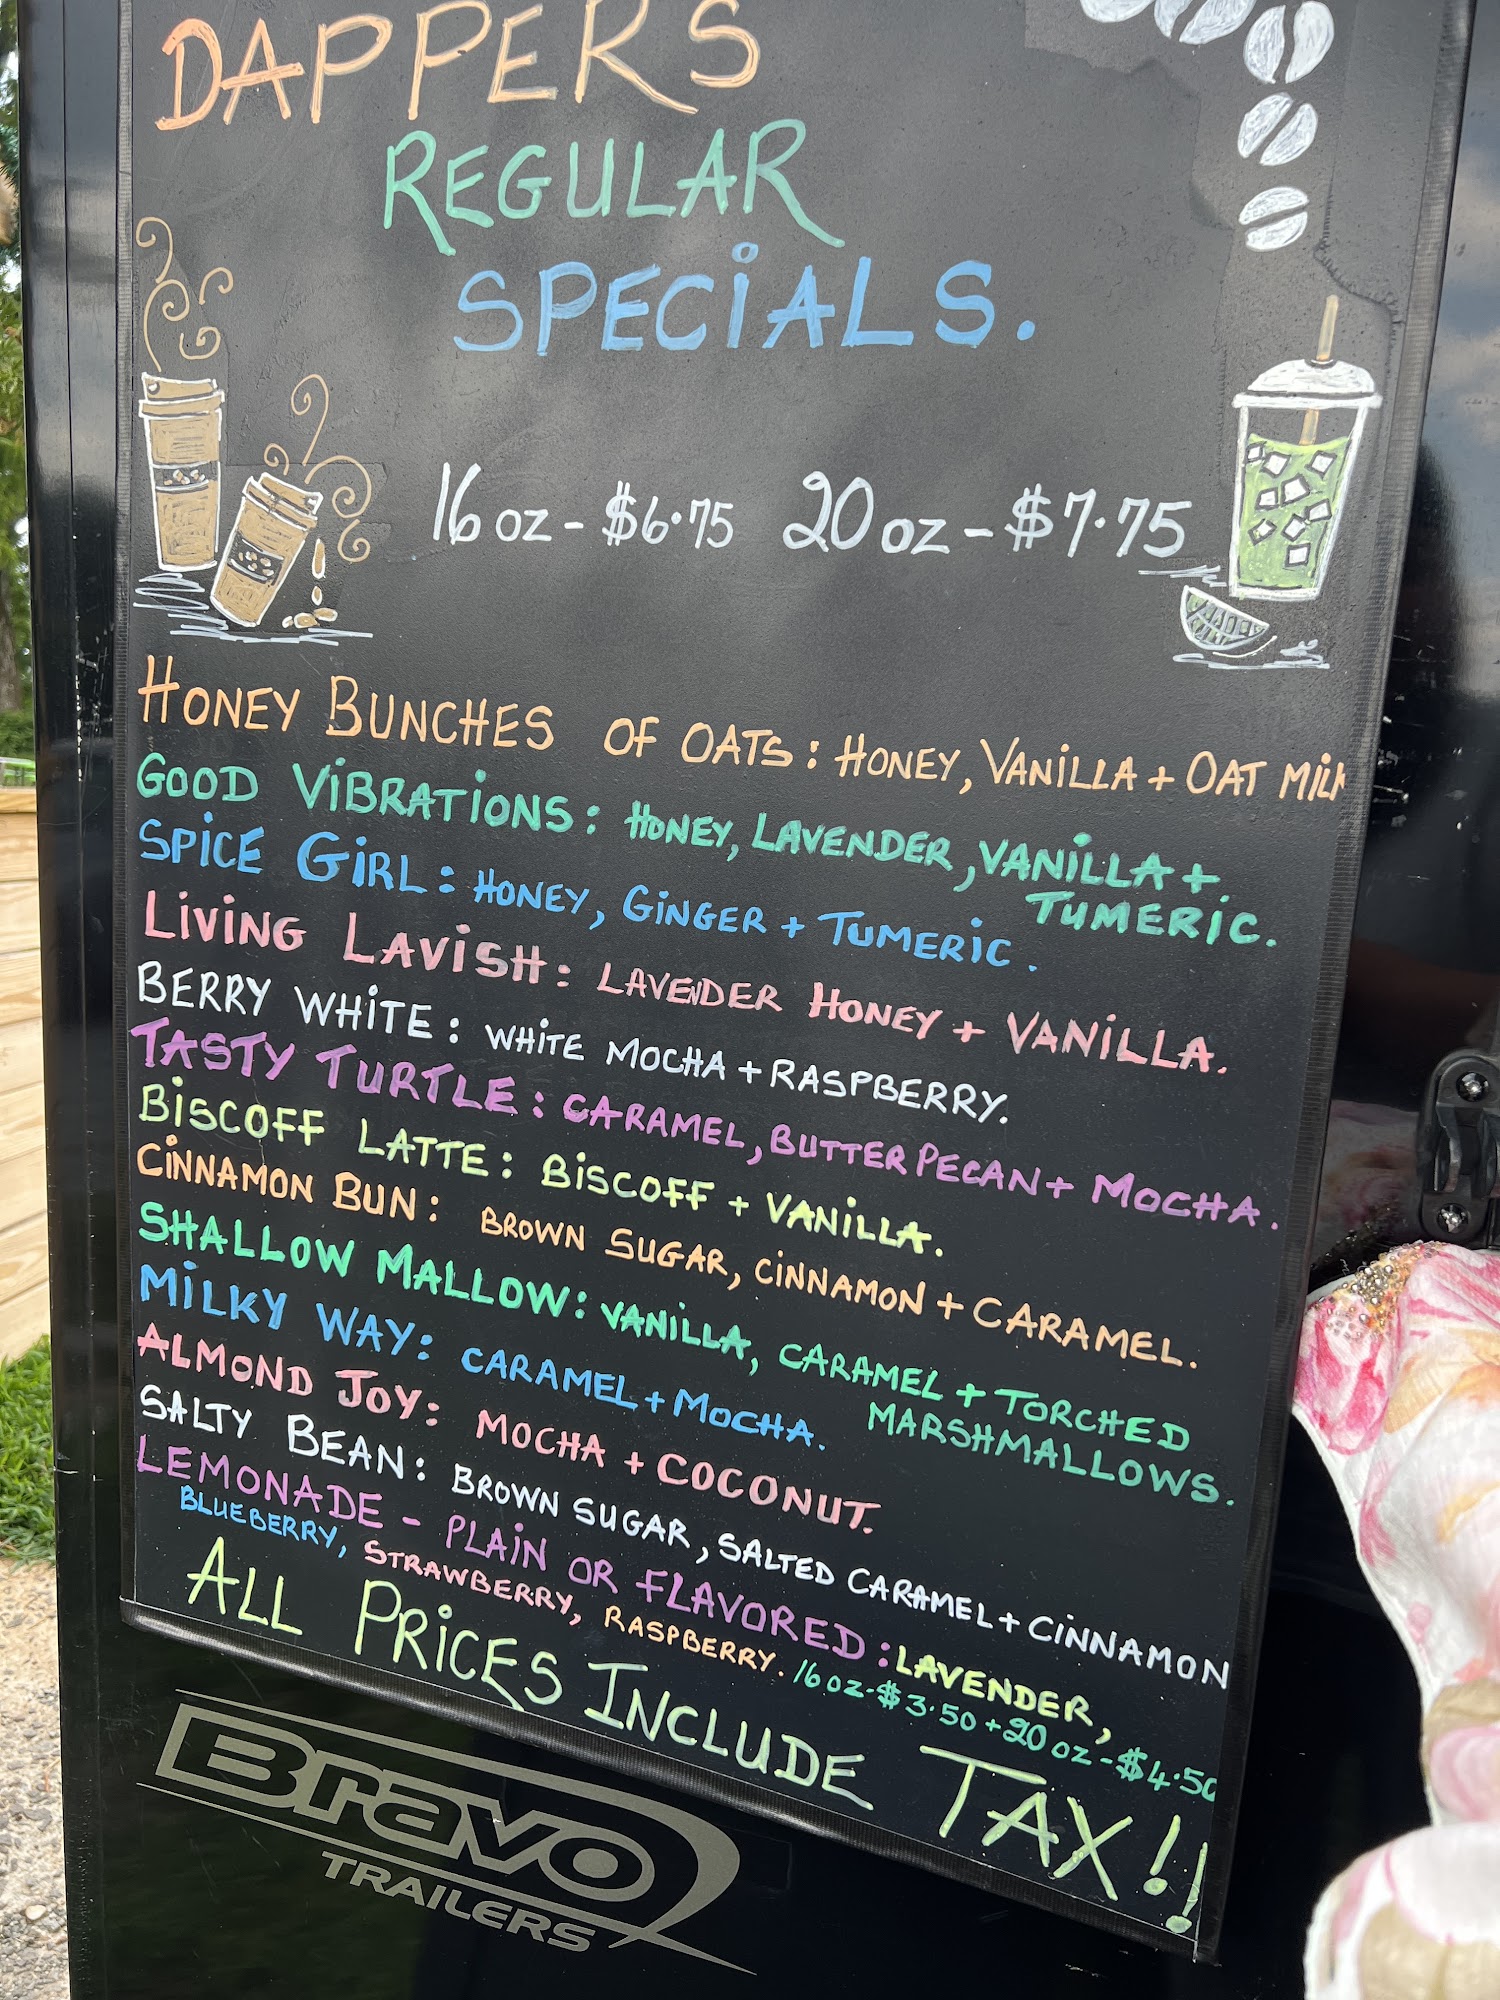 DAPPERS
REGULAR
SPECIALS.
16 oz - $6.75 20 oz - $7.75
HONEY BUNCHES OF OATS: HONEY, VANILLA + OAT MILK
GOOD VIBRATIONS: HONEY, LAVENDER, VANILLA +
TUMERIC.
SPICE GIRL: HONEY, GINGER + TUMERIC.
LIVING LAVISH: LAVENDER HONEY + VANILLA.
BERRY WHITE: WHITE MOCHA + RASPBERRY.
TASTY TURTLE: CARAMEL, BUTTER PECAN + MOCHA.
BISCOFF LATTE: BISCOFF + VANILLA.
CINNAMON BUN: BROWN SUGAR, CINNAMON + CARAMEL.
SHALLOW MALLOW: VANILLA, CARAMEL + TORCHED
MARSHMALLOWS.
MILKY WAY: CARAMEL + MOCHA.
ALMOND JOY: MOCHA + COCONUT.
SALTY BEAN: BROWN SUGAR, SALTED CARAMEL + CINNAMON
LEMONADE - PLAIN OR FLAVORED: LAVENDER,
BLUEBERRY, STRAWBERRY, RASPBERRY. 16 oz - $3.50 + 20 oz - $4.50
ALL PRICES INCLUDE TAX!!
Bravo
TRAILERS